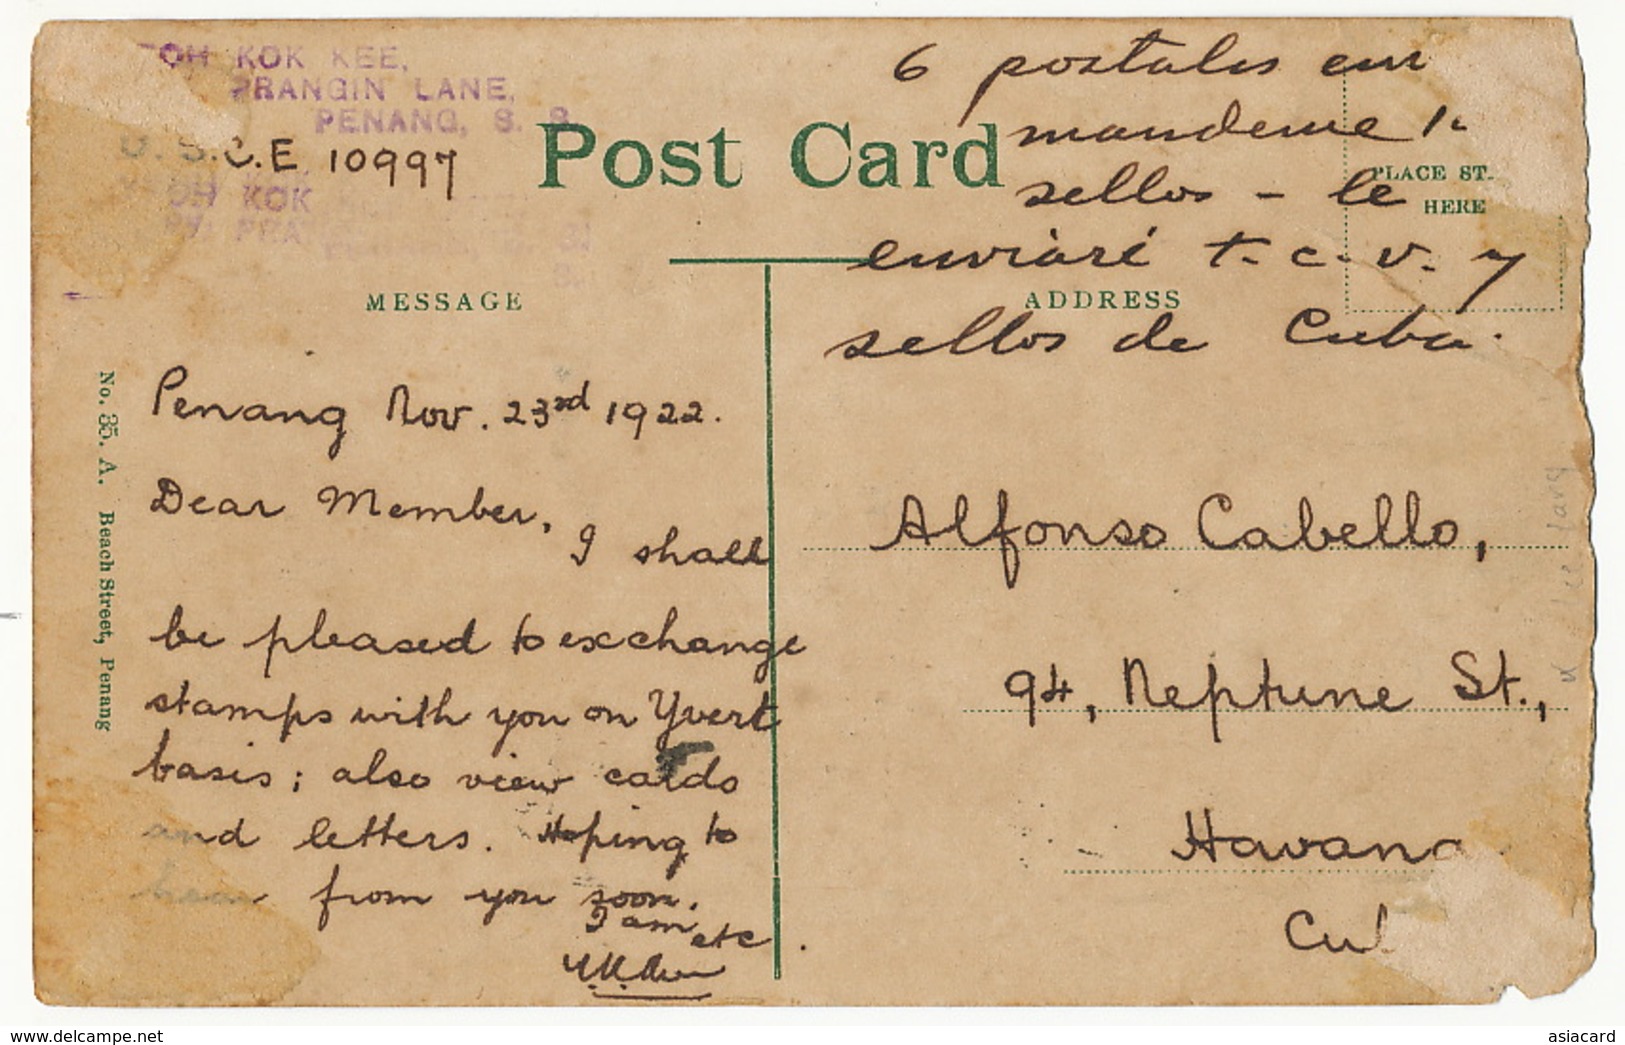 OH KOK KEE,
PRANGIN LANE,
PENANG, S. S.
U. S. C.E 10997
OH KOK
Post Card
6 postales
mandeme
sellos - le
enviaré t. c. v. y
sellos de Cuba.
PLACE ST
HERE
MESSAGE
ADDRESS
No. 35. A. Beach Street, Penang
Penang Nov. 23rd 1922.
Dear Member,
I shall
be pleased to exchange
stamps with you on Yvert
basis; also view cards
and letters. Hoping to
hear from you soon.
I am etc
Alfonso Cabello,
94, Neptune St.,
Havana
Cu
www.delcampe.net
asiacard